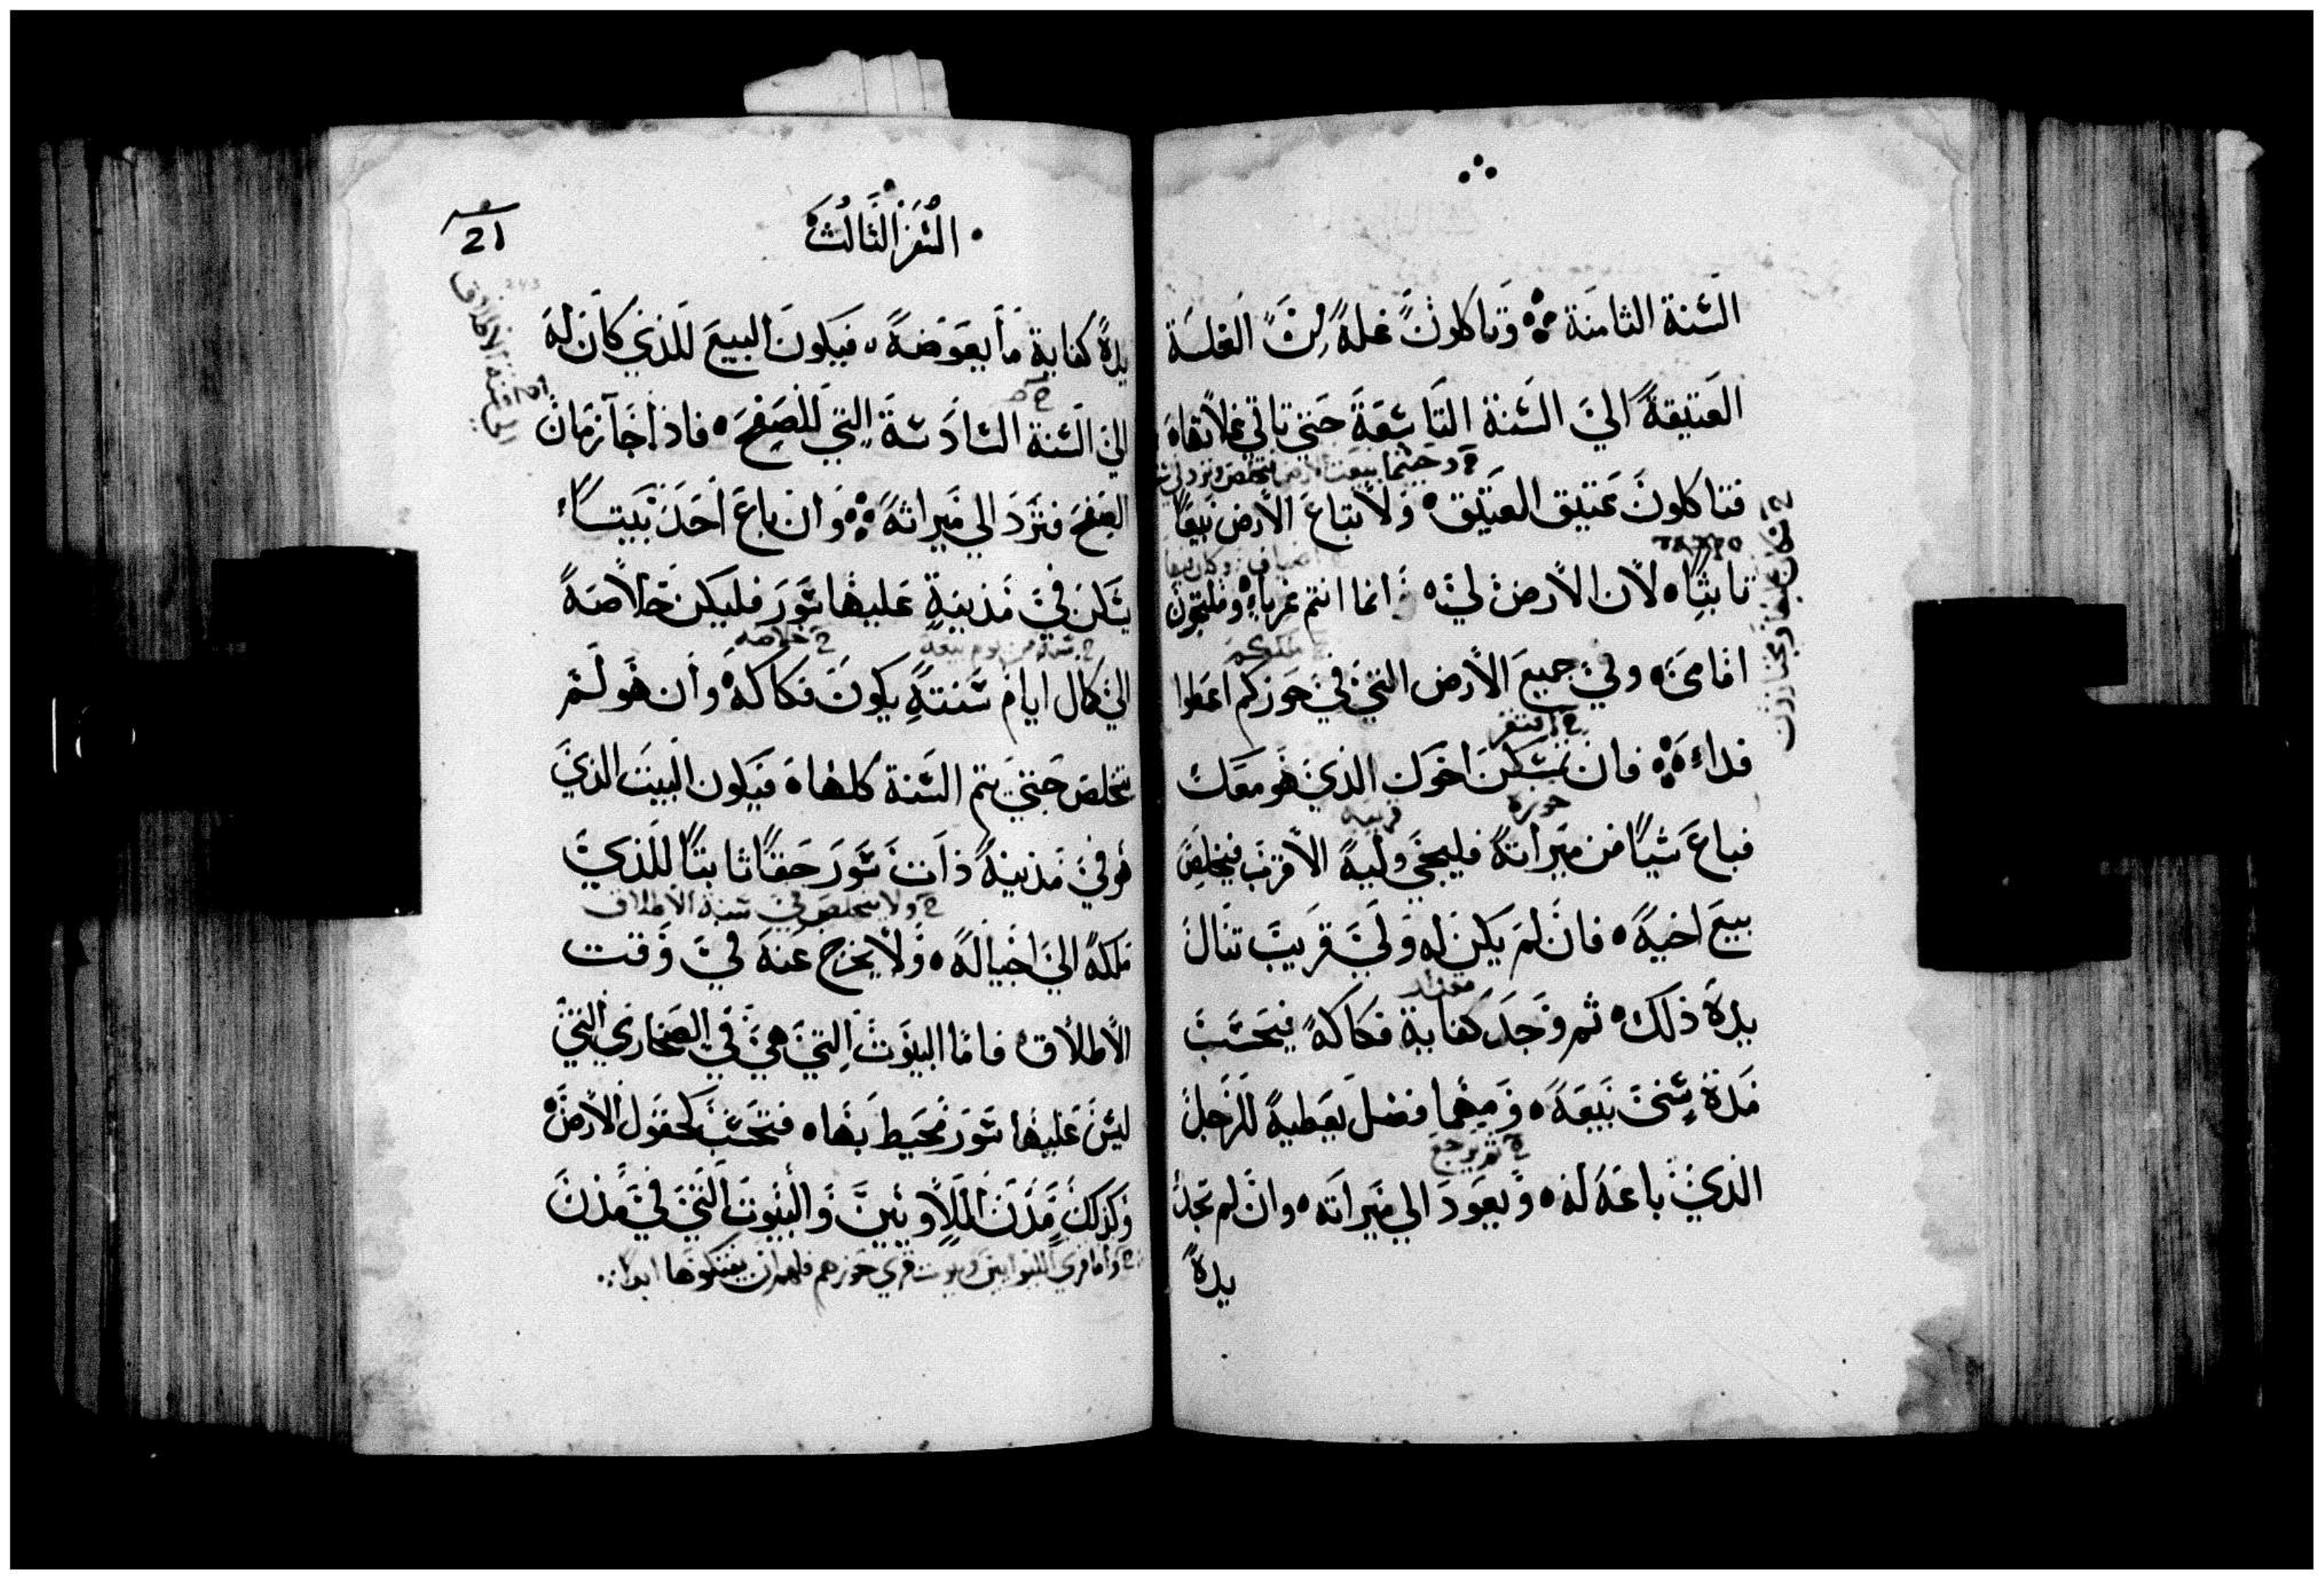 السنة الثامنة ۞ وتاكلون غلة من الغلة
العتيقة الي السنة التاسعة حتي تاتي غلاتها ه
فتاكلون عتيق العتيق ه ولا تباع الارض بيعًا
ثابتًا ه لان الارض لي ه انما انتم غرباء وملتجون
امامي ه وفي جميع الارض التي في حوزكم اعطوا
افتقر
فداء ه فان تمسكن اخوك الذي هو معك
حوزه قريبه
فباع شيًا من ميراثه فليجي وليه الاقرب فيخلص
بيع اخيه ه فان لم يكن له ولي قريب تنال
يده ذلك ه ثم وجد كفاية فكاكه فيحسب
مدة سني بيعه ه ومهما فضل يعطيه للرجل
ثم يرجع
الذي باعه له ه ويعود الي ميراثه ه وان لم تجد
يده
السفر الثالث
21
يده كفاية ما يعوضه ه فيكون البيع للذي كان له
الي سنة الاطلاق
الي السنة السادسة التي للصفح ه فاذا جا زمان
الصفح فترد الي ميراثه ۞ وان باع احد بيتًا
يسكن في مدينة عليها سور فليكن خلاصه
سنة من يوم بيعه خلاصه
الي كمال ايام سنته يكون فكاكه وان هو لم
يتخلص حتي تتم السنة كلها ه فيكون البيت الذي
هو في مدينة ذات سور حقًا ثابتًا للذي
ولا يتخلص في سنة الاطلاق
ملكه الي اجياله ه ولا يخرج عنه في وقت
الاطلاق ه فاما البيوت التي هي في الصحاري التي
ليس عليها سور محيط بها ه فتحسب كحقول الارض
وكذلك مدن اللاويين والبيوت التي في مدن
واما قري الليوانيين وبيوت قري حوزهم فلهم ان يفتكوها ابدًا